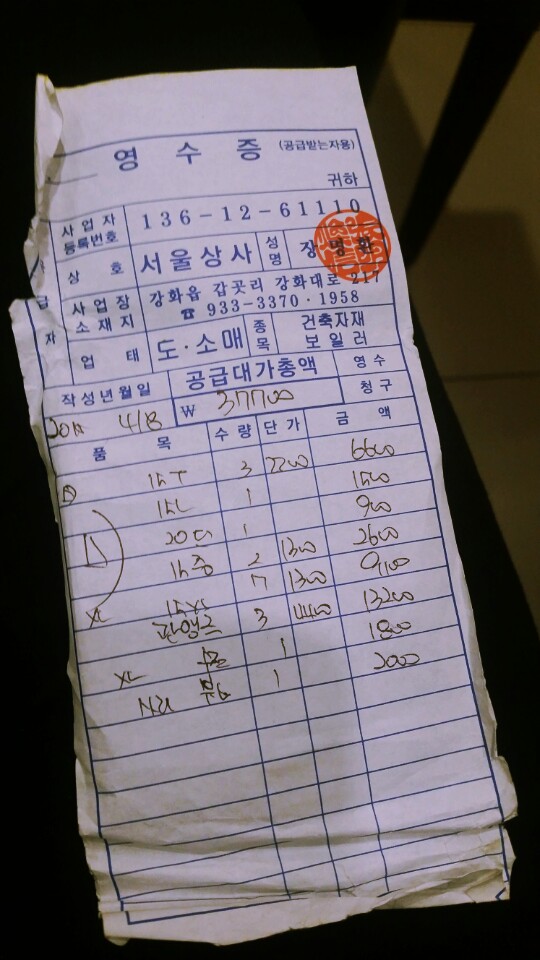 영 수 증 (공급받는자용)
귀하
사업자 등록번호 136-12-61110
상 호 서울상사 성명 장명화
사업장 소재지 강화읍 갑곳리 강화대로 217
☎ 933-3370·1958
업 태 도·소매 종목 건축자재 보일러
작성년월일 공급대가총액 영수 청구
4/8 ₩ 37700
품 목 수 량 단 가 금 액
3 2200 6600
1 1500
1 900
2 1300 2600
7 1300 9100
3 4400 13200
1 1800
1 2000